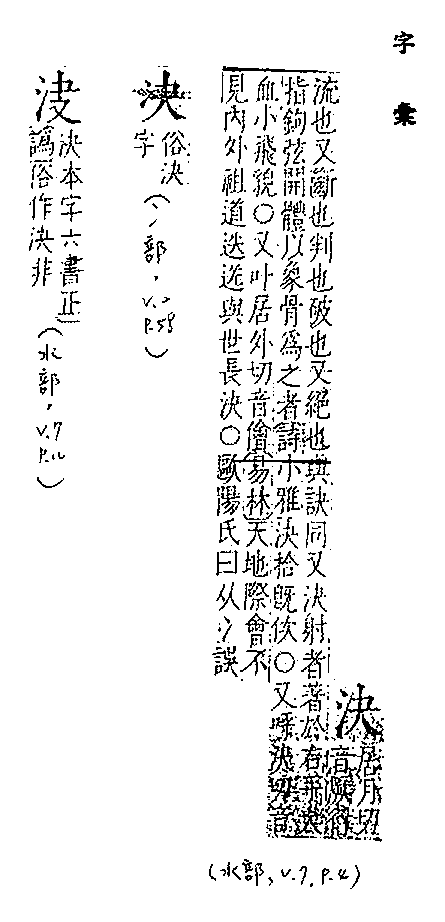 字彙
決
居月切
音
流也又斷也判也破也又絕也與訣同又決射者著於右手
指鉤弦開體以象骨爲之者詩小雅決拾既佽○又呼決切音
血小飛貌○又叶居外切音儈易林天地際會不
見内外祖道迭送與世長決○歐陽氏曰从冫誤
(水部, v.7, p.4)
决
俗決
字
(冫部, v.2 p.58)
決本字六書正
譌俗作決非
(水部, v.7 p.12)